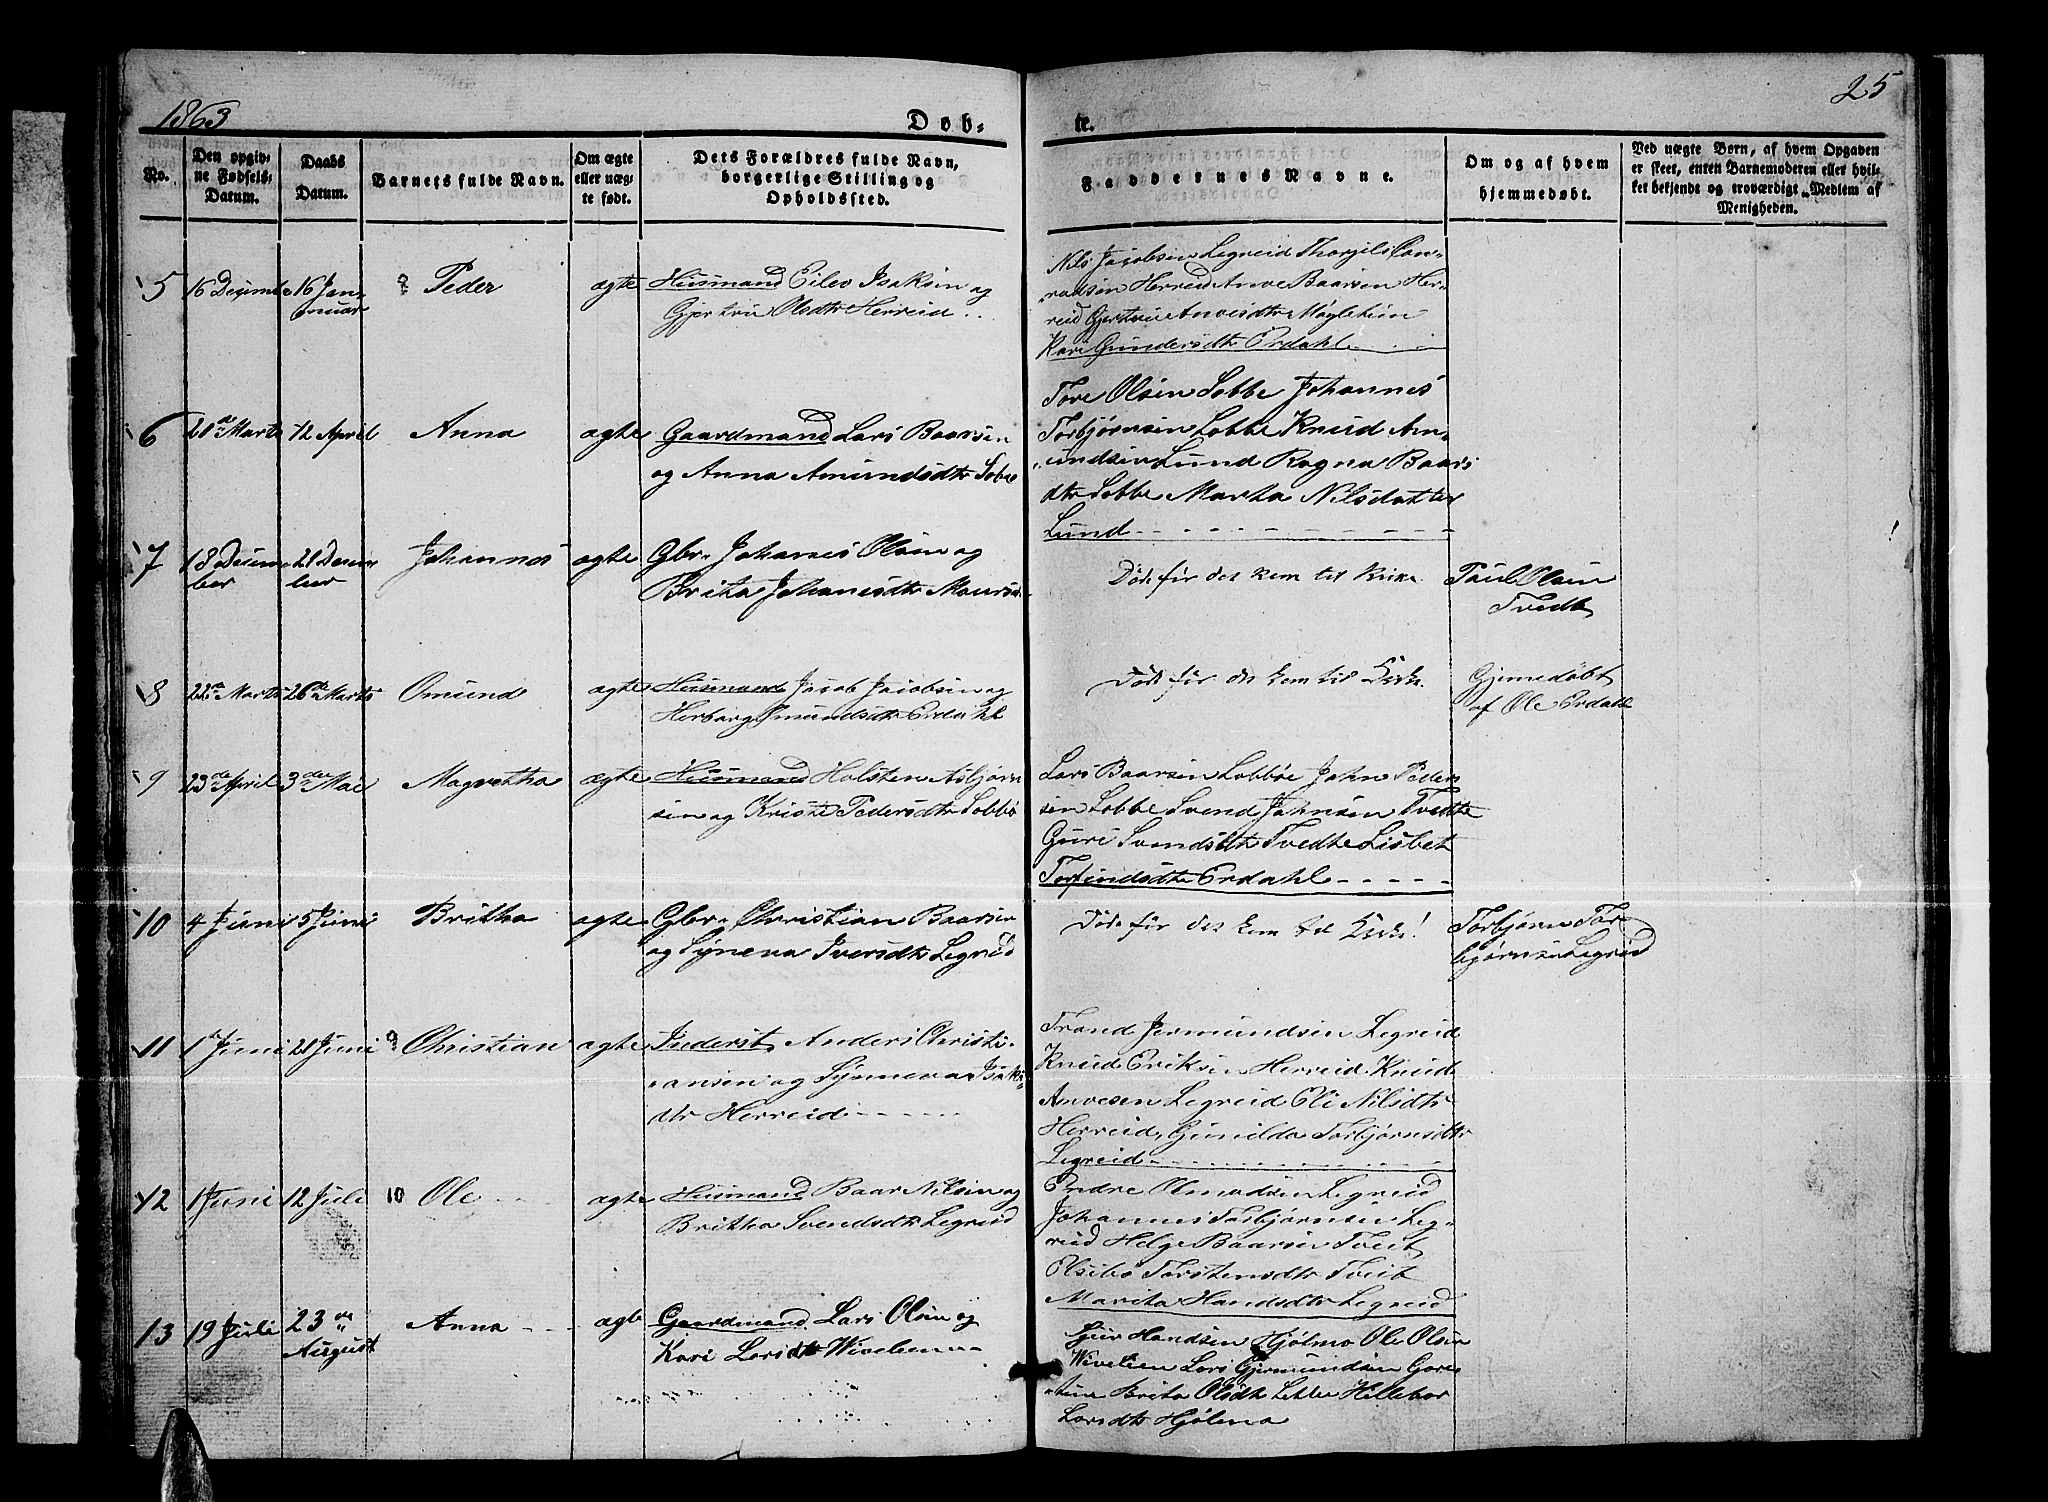 1863
25
Døb-
te.
No.
Den opgiv-
ne Fødsels-
Datum.
Daabs
Datum.
Barnets fulde Navn.
Om ægte
eller uæg-
te født.
Dets Forældres fulde Navn,
borgerlige Stilling og
Opholdssted.
Faddernes Navne.
Om og af hvem
hjemmedøbt.
Ved uægte Børn, af hvem Opgaven
er skeet, enten Barnemoderen eller hvil-
ket bekjendt og troværdigt Medlem af
Menigheden.
5
16 Decembr
16 Jan-
nuar
Peder
ægte
Husmand Eilev Isaksen og
Gjertru Olsdtr Herreid
Nils Jacobsen Legreid Thorgils Con-
radsen Herreid Anve Baarsen Her-
reid Gjertru Anvesdtr Møgletun
Kari Gundersdtr Erdahl
6
21de Marts
12 April
Anna
ægte
Gaardmand Lars Baarsen
og Anna Amundsdtr Lobbe
Tore Olsen Lobbe Johannes
Torbjørnsen Lobbe Knud Am-
undsen Lund Ragna Baars
dtr Lobbe Marta Nilsdatter
Lund
7
18 Decem
ber
21 Decem
ber
Johannes
ægte
Gbr. Johanes Olsen og
Brita Johanesdtr Maurs
Døde før det kom til Kirke
Paul Olsen
Tvedt
8
22de Marts
26de Marts
Omund
ægte
Husmand Jacob Jacobsen og
Herborg Omundsdtr Erdahl
Døde før det kom til Kirke.
Gjemedøbt
af Ole Erdahl
9
23de April
3die Mai
Magretha
ægte
Husmand Holsten Asbjørn
sen og Kriste Pedersdtr Lobbø
Lars Baarsen Lobbøe John Peder
sen Lobbe Svend Johnsen Tvedte
Guri Svendsdtr Tvedte Lisbet
Torfindsdtr Erdahl
10
4 Juni
5 Juni
Britha
ægte
Gbr. Christian Baarsen
og Synneva Iversdtr Legreid
Døde før det kom til Kirke!
Torbjørn Tor
bjørnsen Legreid
11
1ste Juni
21 Juni
9
Christian
ægte
Inderst Anders Christi-
ansen og Synneva Isaks
dtr Herreid
Trond Jermundsen Legreid
Knud Eriksen Herreid Knud
Anvesen Legreid Eli Nilsdtr
Herreid, Gunilda Torbjørnsdtr
Legreid
12
1 Juni
12 Juli
10
Ole
ægte
Husmand Baar Nilsen og
Britha Svendsdtr Legreid
Endre Olmodsen Legreid
Johannes Torbjørnsen Leg-
reid Helge Baarsen Tveit
Elsebe Torstensdtr Tveit
Marita Handsdtr Legreid
13
19 Juli
23de
August
Anna
ægte
Gaardmand Lars Olsen og
Kari Larsdtr Wivelien
Sjur Handsen Hjølmo Ole Olsen
Wivelien Lars Gjermundsen Gare
Brita Olsdtr Hillebor
Larsdtr Hjølmo